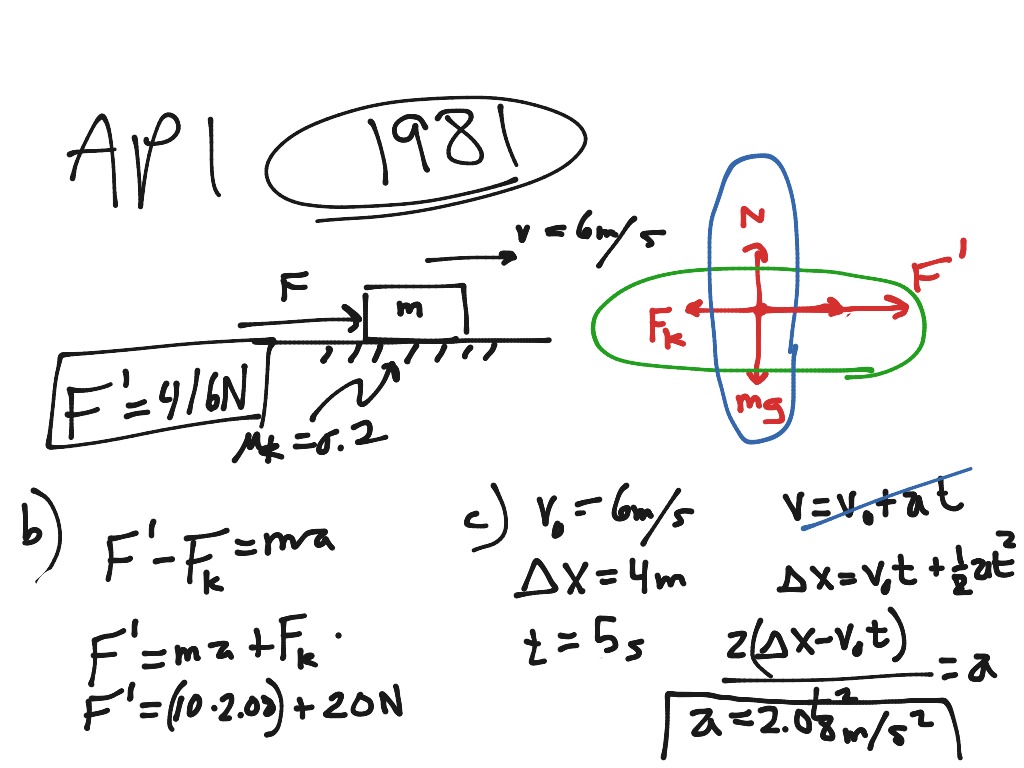 AP1 1981
v = 6m/s
F
m
N
F'
F_k
mg
F' = 416N
μ_k = 0.2
b)
F' - F_k = ma
F' = ma + F_k .
F' = (10 · 2.08) + 20N
c) v_0 = 6m/s
Δx = 4m
t = 5s
v = v_0 + at
Δx = v_0t + 1/2at²
2(Δx - v_0t) / t² = a
a = 2.08m/s²